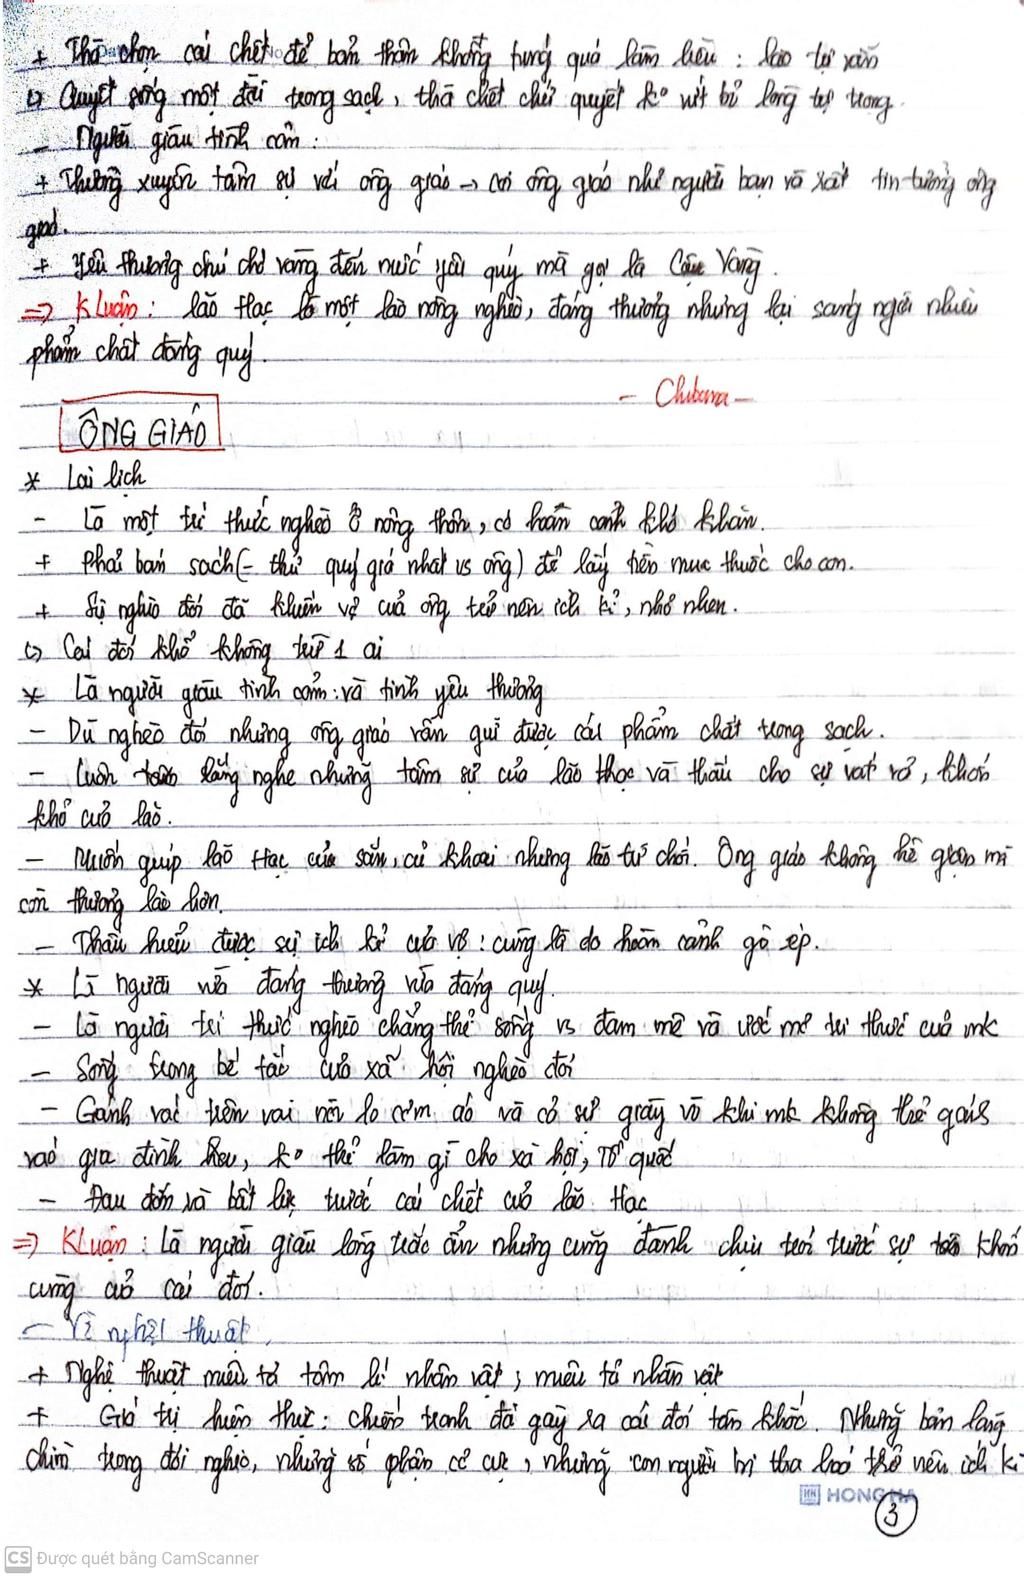 + Thà chọn cái chết để bản thân không túng quá làm liều : lão tự vẫn
↳ Quyết sống một đời trong sạch, thà chết chứ quyết ko vứt bỏ lòng tự trọng.
- Người giàu tình cảm :
+ Thường xuyên tâm sự với ông giáo → coi ông giáo như người bạn và rất tin tưởng ông
giáo.
+ Yêu thương chú chó vàng đến mức yêu quý mà gọi là Cậu Vàng.
=> KLuận : lão Hạc là một lão nông nghèo, đáng thương nhưng lại sáng ngời nhiều
phẩm chất đáng quý.
- Chibana -
ÔNG GIÁO
* Lai lịch
- Là một trí thức nghèo ở nông thôn, có hoàn cảnh khó khăn.
+ Phải bán sách (- thứ quý giá nhất vs ông) để lấy tiền mua thuốc cho con.
+ Sự nghèo đói đã khiến vợ của ông trở nên ích kỉ, nhỏ nhen.
↳ Cái đói khổ không từ 1 ai
* Là người giàu tình cảm và tình yêu thương
- Dù nghèo đói nhưng ông giáo vẫn giữ được cái phẩm chất trong sạch.
- Luôn lắng nghe những tâm sự của lão Hạc và thấu cho sự vất vả, khốn
khổ của lão.
- Muốn giúp lão Hạc củ sắn, củ khoai nhưng lão từ chối. Ông giáo không hề giận mà
còn thương lão hơn.
- Thấu hiểu được sự ích kỉ của vợ : cũng là do hoàn cảnh gò ép.
* Là người vừa đáng thương vừa đáng quý.
- Là người trí thức nghèo chẳng thể sống vs đam mê và ước mơ tri thức của mk
- Sống trong bế tắc của xã hội nghèo đói
- Gánh vác trên vai nỗi lo cơm áo và có sự giày vò khi mk không thể giúp
vào gia đình, ko thể làm gì cho xã hội, Tổ quốc
- Đau đớn và bất lực trước cái chết của lão Hạc
=> KLuận : Là người giàu lòng trắc ẩn nhưng cũng đành chịu trói trước sự khốn
cùng của cái đói.
- Về nghệ thuật
+ Nghệ thuật miêu tả tâm lí nhân vật, miêu tả nhân vật
+ Giá trị hiện thực : chiến tranh đã gây ra cái đói tàn khốc. Những bản làng
chìm trong đói nghèo, những số phận cơ cực, những con người bị tha hoá trở nên ích kỉ
HONG HA
3
CS Được quét bằng CamScanner